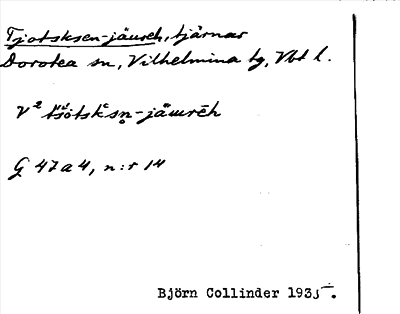 Tjotsksen-jäureh, tjärnar
Dorotea sn, Vilhelmina tg, Vbt l.
V² tšötskᵋsn̥-jäurēh
G 47a4, n:r 14
Björn Collinder 1935.